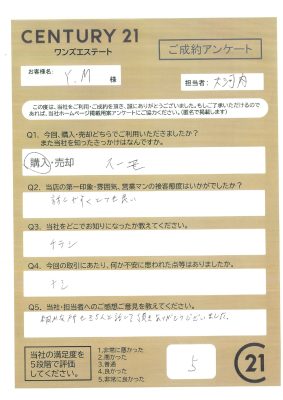 CENTURY 21
ワンズエステート
ご成約アンケート
お客様名: Y.M 様
担当者: 大河内
この度は、当社をご利用・ご成約を頂き、誠にありがとうございました。もしご了承いただけるので
あれば、当社ホームページ掲載用アンケートにご協力ください。(匿名で掲載します)
Q1. 今回、購入・売却どちらでご利用いただきましたか?
また当社を知ったきっかけはなんですか。
購入・売却 スーモ
Q2. 当店の第一印象・雰囲気、営業マンの接客態度はいかがでしたか?
話しやすくとても良い
Q3. 当社をどこでお知りになったか教えてください。
チラシ
Q4. 今回の取引にあたり、何か不安に思われた点等はありましたか。
ナシ
Q5. 当社・担当者へのご感想ご意見を教えてください。
頂きありがとうございました。
当社の満足度を
5段階で評価
してください。
1.非常に悪かった
2.悪かった
3.普通
4.良かった
5.非常に良かった
5
C21